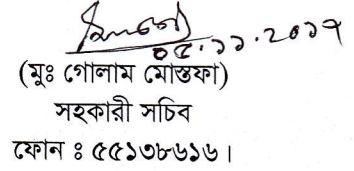 ০৫.১১.২০১৭
(মুঃ গোলাম মোস্তফা)
সহকারী সচিব
ফোন ঃ ৫৫১৩৮৬১৬।